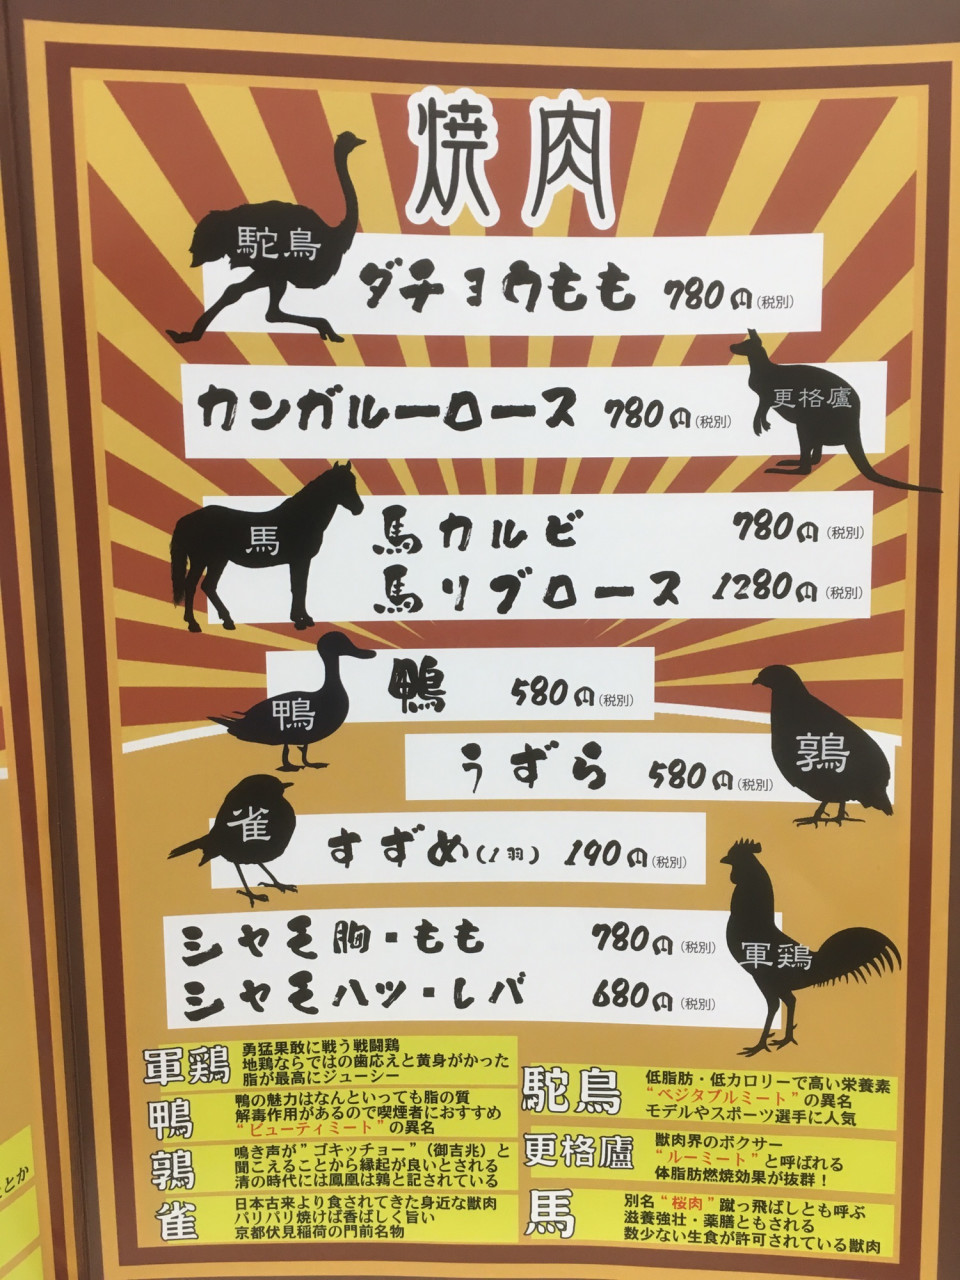 焼肉
駝鳥
ダチョウもも 780円(税別)
カンガルーロース 780円(税別)
更格廬
馬
馬カルビ 780円(税別)
馬リブロース 1280円(税別)
鴨
鴨 580円(税別)
うずら 580円(税別)
鶉
雀
すずめ(1羽) 190円(税別)
シャモ胸・もも 780円(税別)
シャモハツ・レバ 680円(税別)
軍鶏
軍鶏
勇猛果敢に戦う戦闘鶏
地鶏ならではの歯応えと黄身がかった
脂が最高にジューシー
鴨
鴨の魅力はなんといっても脂の質
解毒作用があるので喫煙者におすすめ
"ビューティミート"の異名
鶉
鳴き声が"ゴキッチョー"(御吉兆)と
聞こえることから縁起が良いとされる
清の時代には鳳凰は鶉と記されている
雀
日本古来より食されてきた身近な獣肉
パリパリ焼けば香ばしく旨い
京都伏見稲荷の門前名物
駝鳥
低脂肪・低カロリーで高い栄養素
"ベジタブルミート"の異名
モデルやスポーツ選手に人気
更格廬
獣肉界のボクサー
"ルーミート"と呼ばれる
体脂肪燃焼効果が抜群!
馬
別名"桜肉"蹴っ飛ばしとも呼ぶ
滋養強壮・薬膳ともされる
数少ない生食が許可されている獣肉
とか